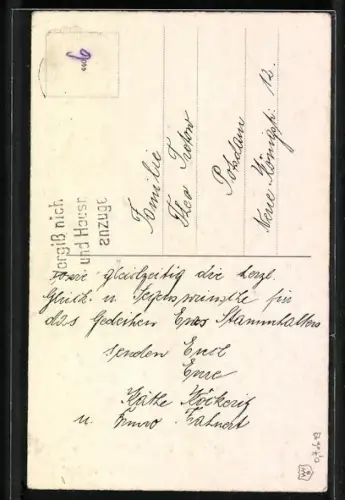 6
Vergiß nich
und Hausn
anzuge
Familie
Theo Treton
Potsdam
Neue Königstr. 12.
gleichzeitig die herzl.
Glück u. Segenswünsche für
das Gedeihen Eures Stammhalters
senden Euch
Eure
Käthe Köckeritz
u.